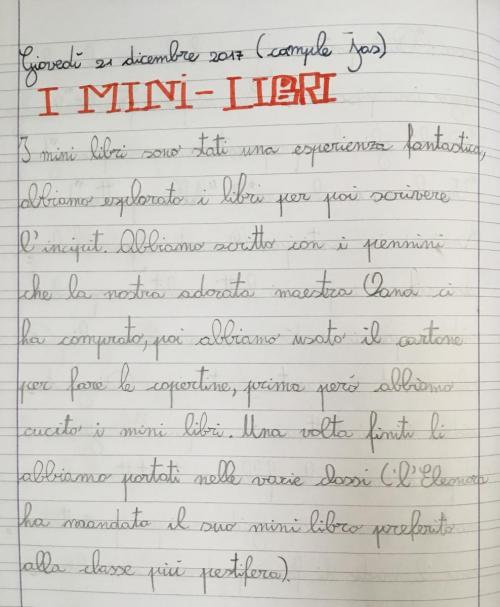 Giovedì 21 dicembre 2017 (compile Jas)
I MINI-LIBRI
I mini libri sono stati una esperienza fantastica,
abbiamo esplorato i libri per poi scrivere
l'incipit. Abbiamo scritto con i pennini
che la nostra adorata maestra Oana ci
ha comprato, poi abbiamo usato il cartone
per fare le copertine, prima però abbiamo
cucito i mini libri. Una volta finiti li
abbiamo portati nelle varie classi (l'Eleonora
ha mandato il suo mini libro preferito
alla classe più pestifera).